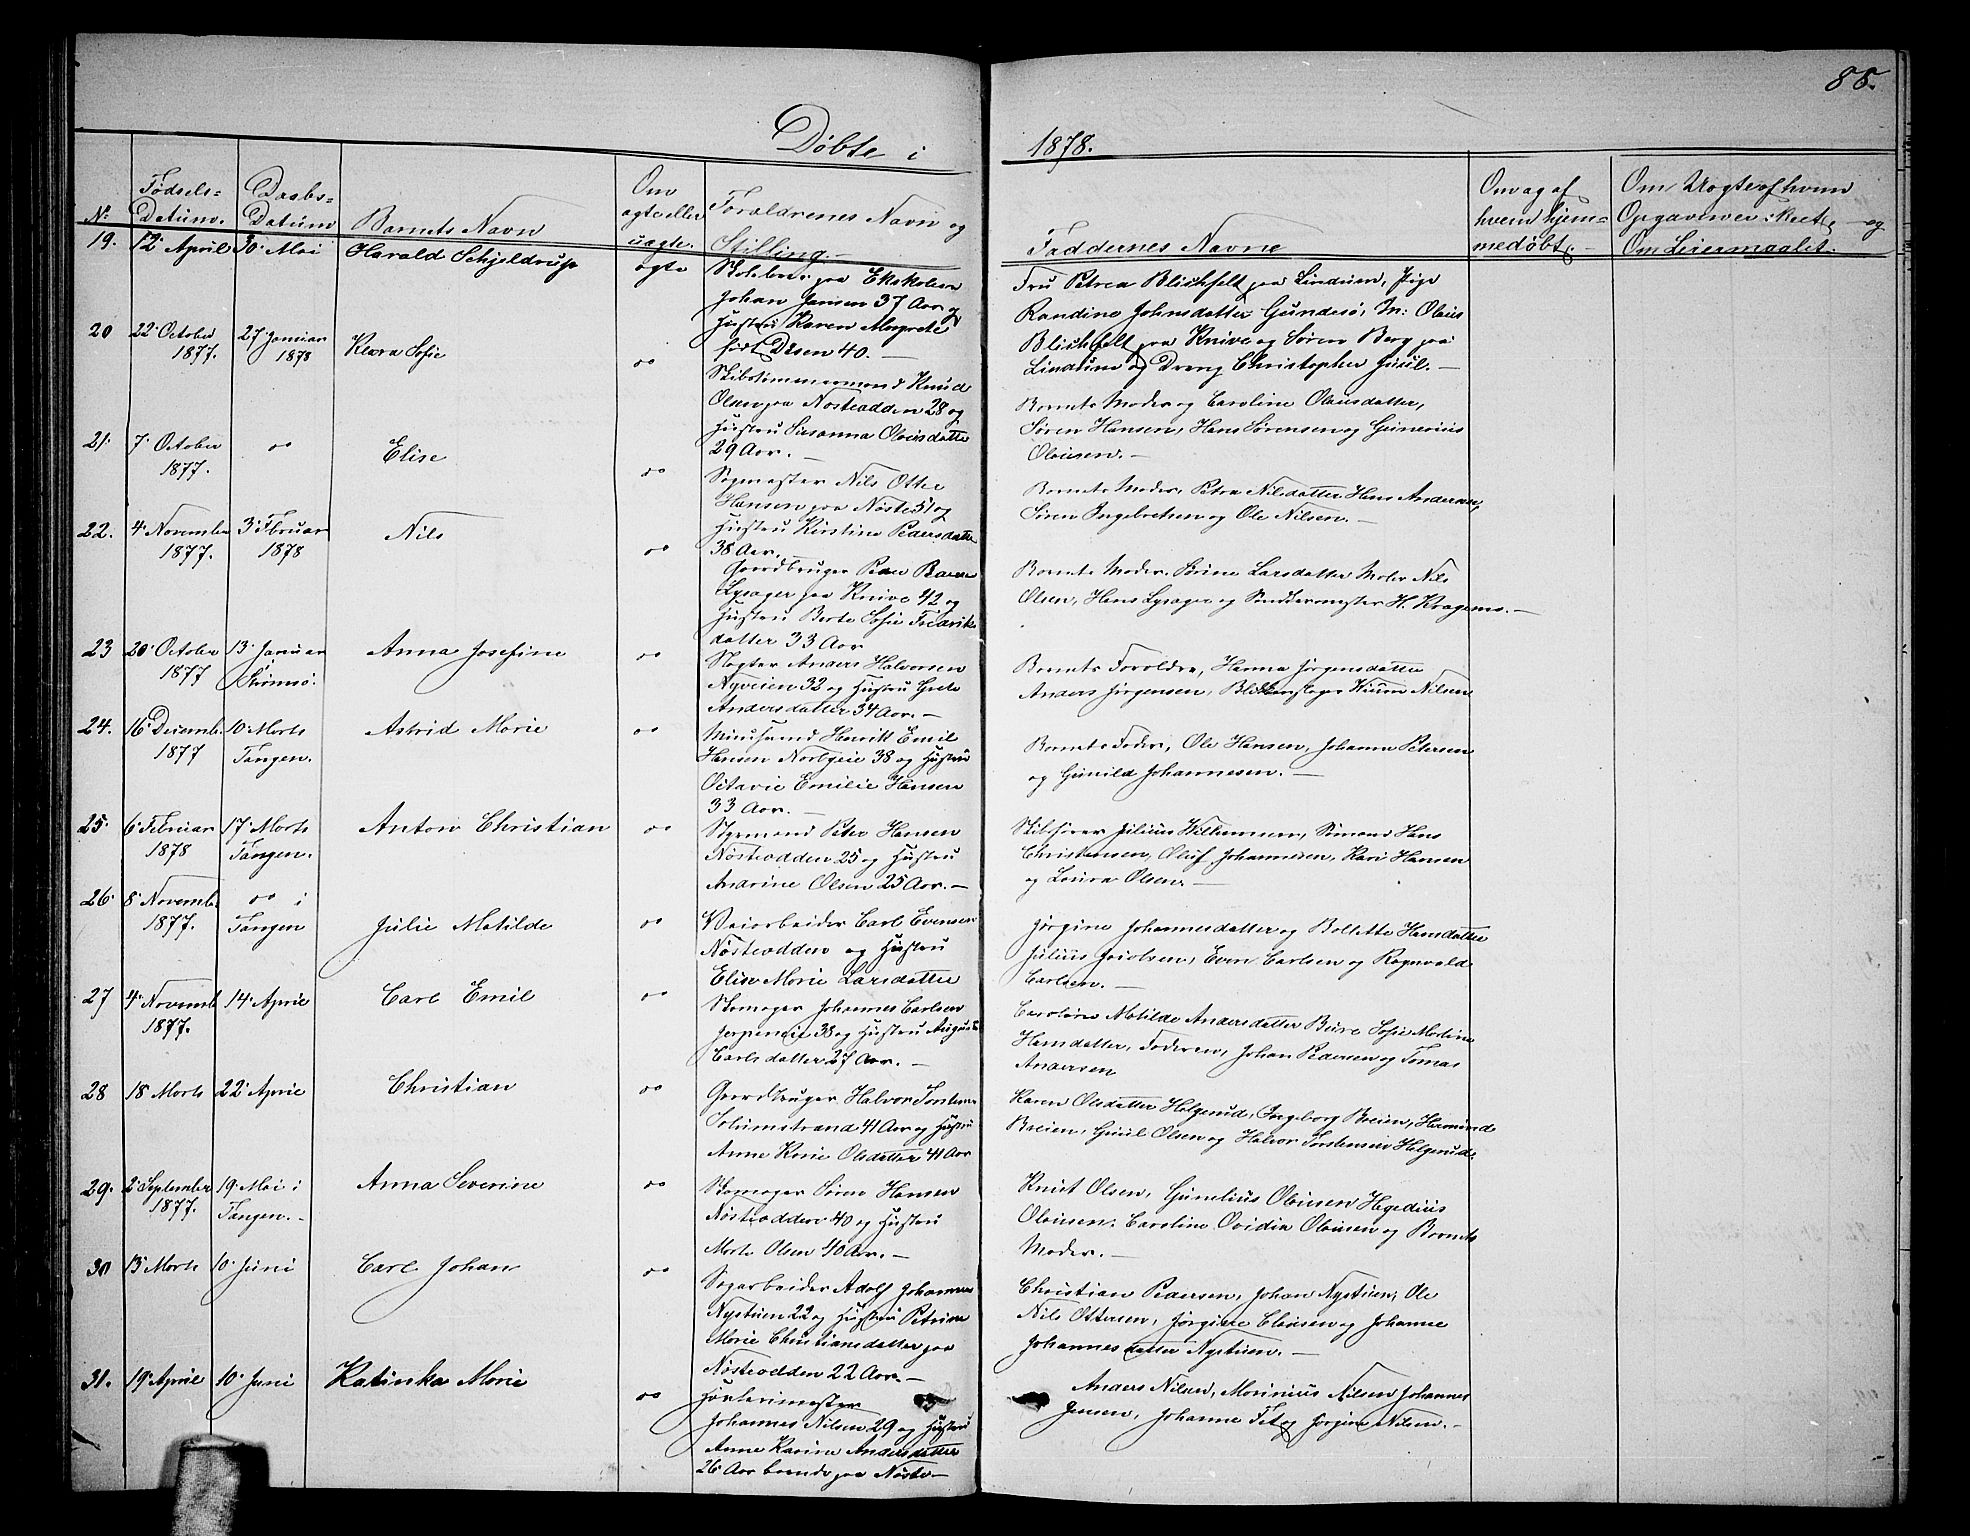 85.
Döbte i 1878.
No. Fødsels-Datum. Daabs-Datum Barnets Navn Om ægte eller uægte. Forældrenes Navn og Stilling.— Faddernes Navne Om og af hvem hjemmedøbt.— Om Uægte af hvem Opgaven er skeet og Om Leiermaalet.
19. 12. April 30. Mai Harald Schjeldrup ægte
Johan Jensen 37 Aar og
Hustru Karen Margrete
født Olsen 40.—
Fru Petrea Blichfelt paa Lindum, Pige
Randine Johnsdatter Gundesø, M: Olaus
Blichfelt paa Knive og Søren Berg paa
Lindum og Dreng Christopher Juul.—
20 22. October 1877. 27 Januar 1878 Klara Sofie do
Skibstømmermand Knud
Olsen paa Nøsteodden 28 og
Hustru Susanna Olausdatter
29 Aar.—
Barnets Moder og Caroline Olausdatter,
Søren Hansen, Hans Sørensen og Gunerius
Olausen.—
21. 7. October 1877. do Elise do
Sagmester Nils Otter
Hansen paa Nøste 51 og
Hustru Kirstine Pedersdatter
38 Aar.
Barnets Moder, Petra Nilsdatter Hans Andersen,
Søren Ingebretsen og Ole Nilsen.—
22. 4. November 1877. 3. Februar 1878 Nils do
Gaardbruger
Lysager paa Knive 42 og
Hustru Berte Sofie Fredriks
datter 33 Aar
Barnets Moder. Sørine Larsdatter Maler Nils
Olsen, Hans Lysager og H. Kragemo.—
23 20. October 1877 13. Januar Strømsø. Anna Josefine do
Slagter Anders Halvorsen
Nyveien 32 og Hustru Grete
Andersdatter 34 Aar.—
Barnets Forældre, Hanna Jørgensdatter
Anders Jørgensen, Blikkenslager Nilsen
24. 16. Decemb. 1877 10. Marts Tangen. Astrid Marie do
Henrik Emil
Hansen 38 og Hustru
Octavie Emilie Hansen
33 Aar.—
Barnets Fader, Ole Hansen, Johanne Petersen
og Gunild Johannesen.—
25. 6. Februar 1878 17. Marts Tangen. Anton Christian do
Styrmand Peter Hansen
Nøsteodden 25 og Hustru
Anarine Olsen 25 Aar.—
Skibsfører Julius Sømand Hans
Christensen, Oluf Johannesen, Kari Hansen
og Laura Olsen.—
26. 8. Novemb. 1877. do i Tangen Julie Matilde do
Veiarbeider Carl Evensen
Nøsteodden og Hustru
Elise Marie Larsdatter
Jørgine Johannesdatter og Bollette Hansdatter
Julius Jacobsen, Even Carlsen og Ragnvald
Carlsen.—
27 4. Novemb. 1877. 14. April Carl Emil do
Skomager Johannes Carlsen
38 og Hustru Augusta
Carlsdatter 27 Aar.—
Caroline Matilde Andersdatter Sofie Martine
Hansdatter, Faderen, Johan Pedersen og Tomas
Andersen
28 18. Marts 22. April Christian do
Gaardbruger Halvor Torstensen
Solumstrand 41 Aar og Hustru
Anne Karie Olsdatter 41 Aar
Karen Olsdatter Helgerud, Ingeborg Breien, Hermand
Breien, Guul Olsen og Halvor Torstensen Helgerud.
29. 2. September 1877. 19. Mai i Tangen.— Anna Severine do
Skomager Søren Hansen
Nøsteodden 40 og Hustru
Marte Olsen 40 Aar.—
Knut Olsen, Gunelius Olausen Hegedius
Olausen. Caroline Ovidia Olausen og Barnets
Moder.—
30 13. Marts 10. Juni Carl Johan do
Sagarbeider Adolf Johannes
Nystuen 22 og Hustru Petrine
Marie Christiansdatter paa
Nøsteodden 22 Aar.—
Christian Pedersen, Johan Nystuen, Ole
Nils Ottersen, Jørgine Clausen og Johanne
Johannesdatter Nystuen.—
31. 19. April 10. Juni Katinka Marie do
Johannes Nilsen 29 og Hustru
Anne Karine Andersdatter
26 Aar boende paa Nøste—
Anders Nilsen, Marinius Nilsen Johannes
Jensen, Johanne Fet og Jørgine Nilsen.—